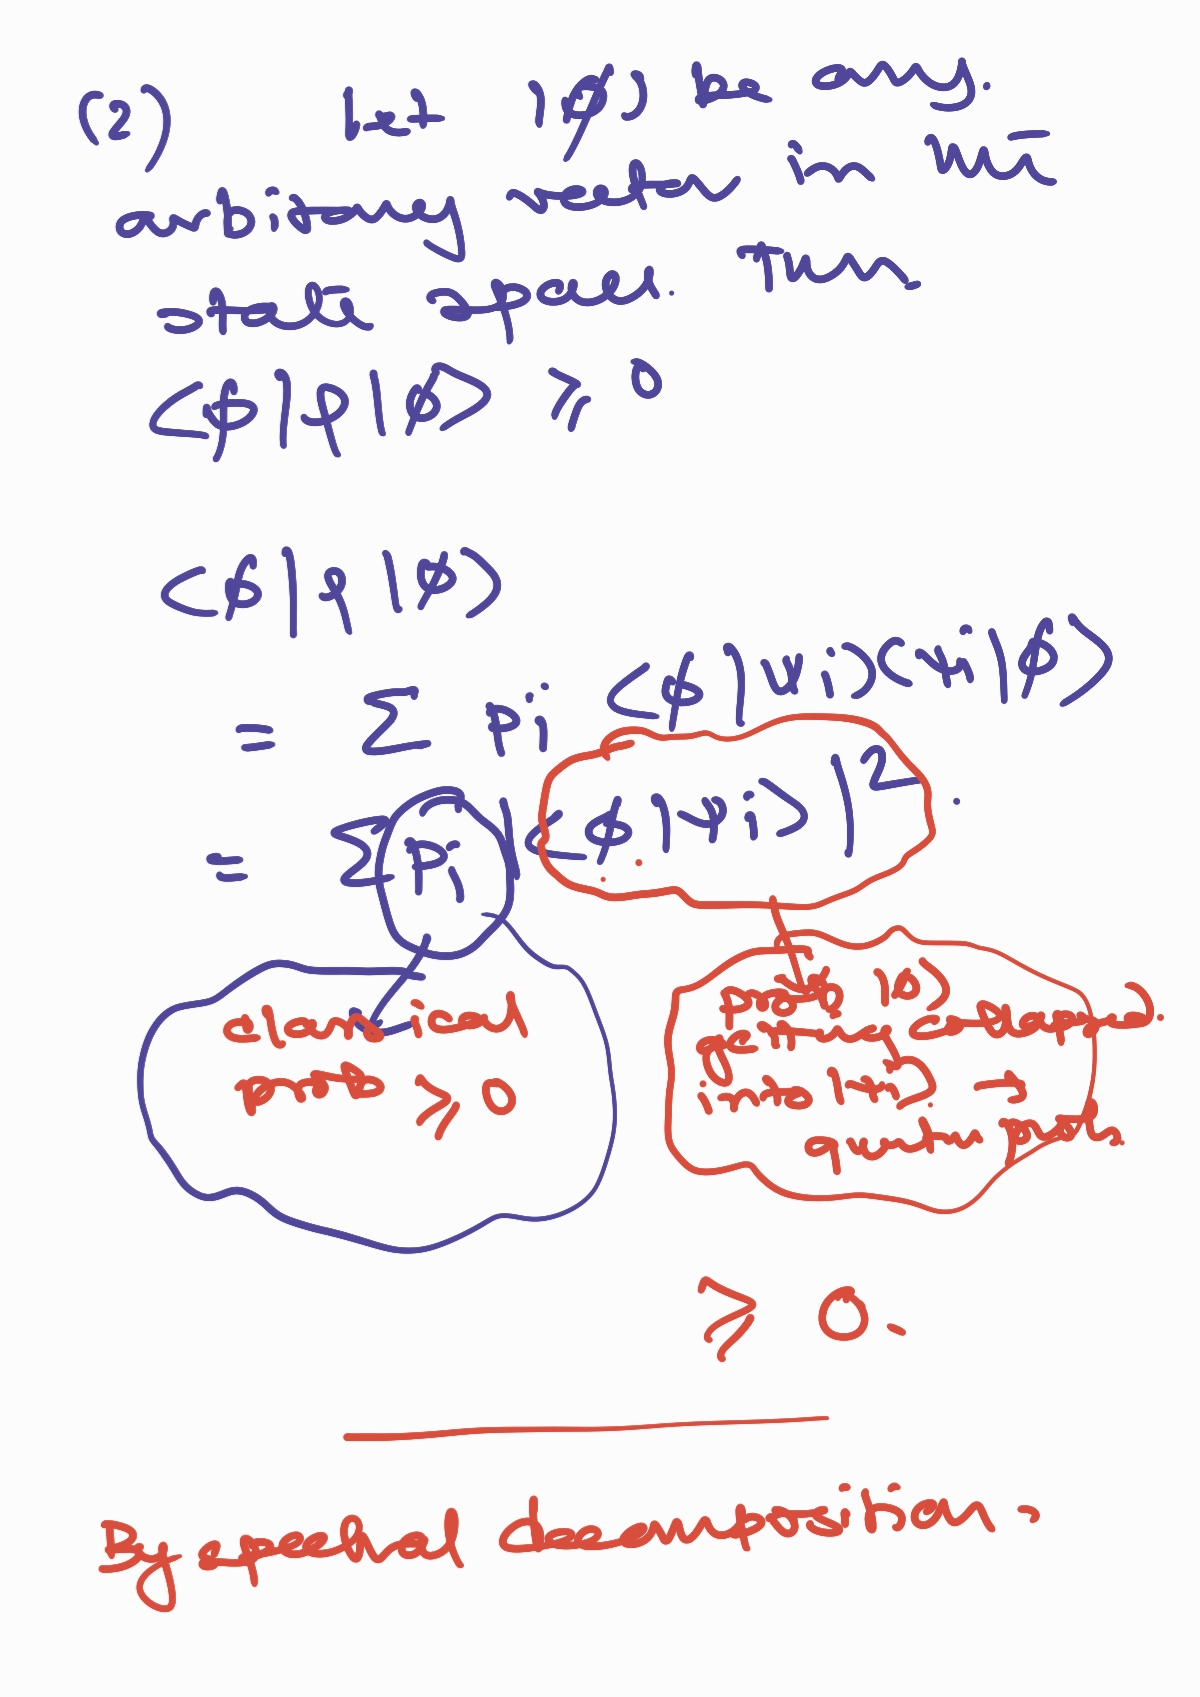 (2) Let |ϕ⟩ be any.
arbitary vector in the
state space. Then
<ϕ|ρ|ϕ> ⩾ 0
<ϕ|ρ|ϕ>
= Σ pi <ϕ|ψi><ψi|ϕ>
= Σ pi |<ϕ|ψi>|².
classical
prob ⩾ 0
prob |ϕ⟩
getting collapsed.
into |ψi⟩ →
quantum prob.
⩾ 0.
By spectral decomposition -